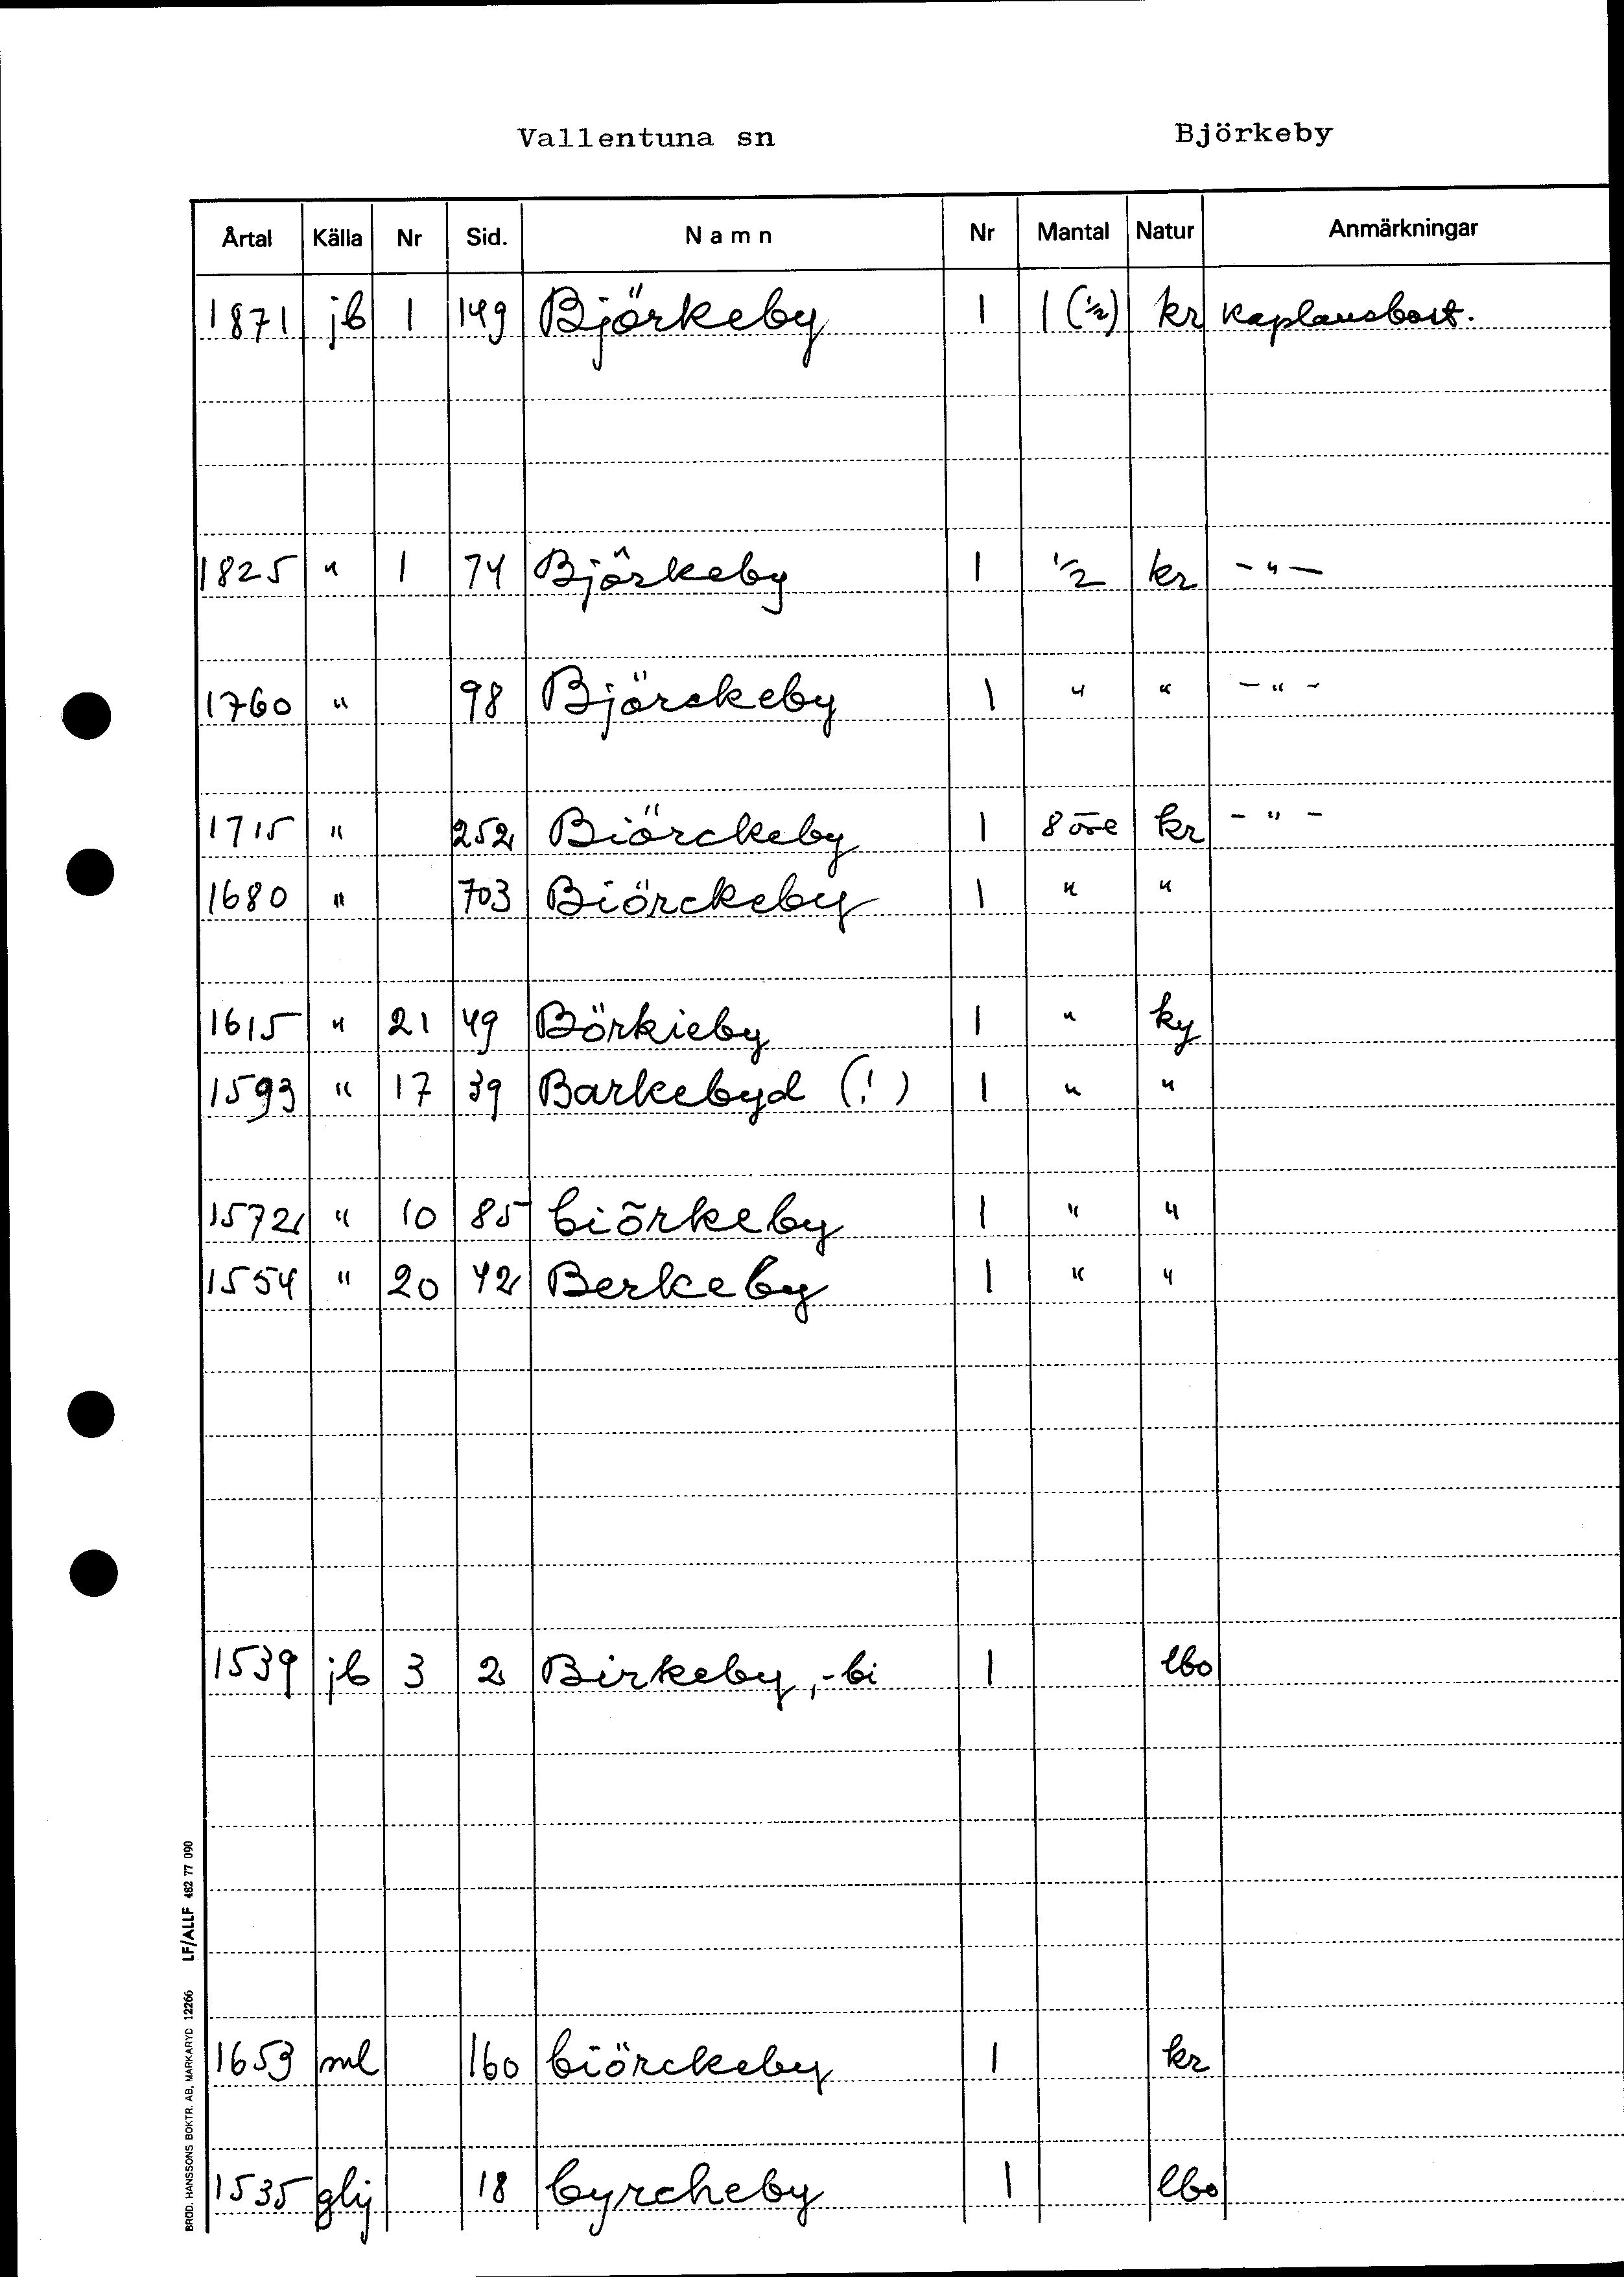 Vallentuna sn Björkeby
Årtal Källa Nr Sid. Namn Nr Mantal Natur Anmärkningar
1871 jb 1 149 Björkeby 1 1 (1/2) kr kaplansbost.
1825 " 1 74 Björkeby 1 1/2 kr - " -
1760 " 98 Björckeby 1 " " - " -
1715 " 252 Biörckeby 1 8 öre kr - " -
1680 " 703 Biörckeby 1 " "
1615 " 21 49 Börkieby 1 " ky
1593 " 17 39 Barkebyd (!) 1 " "
1572 " 10 85 biörkeby 1 " "
1554 " 20 42 Berkeby 1 " "
1539 jb 3 2 Birkeby, -bi 1 lbo
1653 ml 160 biörckeby 1 kr
1535 glij 18 byrcheby 1 lbo
BRÖD. HANSSONS BOKTR. AB, MARKARYD 12266 LF/ALLF 482 77 090